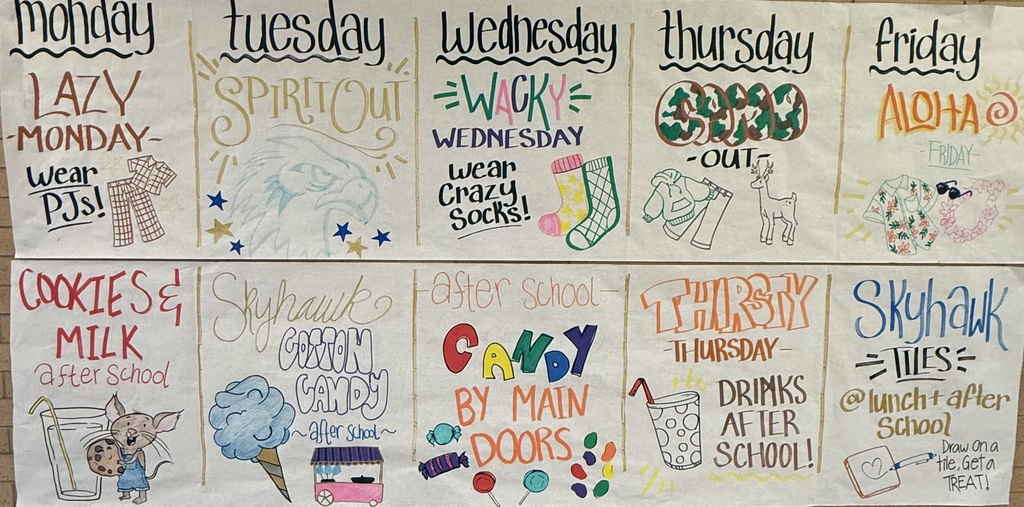 monday
LAZY
-MONDAY-
Wear
PJs!
tuesday
SPIRIT OUT
Wednesday
WACKY
WEDNESDAY
Wear
Crazy
Socks!
thursday
CAMO
-OUT-
friday
ALOHA
-FRIDAY-
COOKIES &
MILK
after school
Skyhawk
COTTON
CANDY
~after school~
-after school-
CANDY
BY MAIN
DOORS
THIRSTY
-THURSDAY-
DRINKS
AFTER
SCHOOL!
SKYHAWK
TILES
@ lunch + after
School
Draw on a
tile, Get a
TREAT!